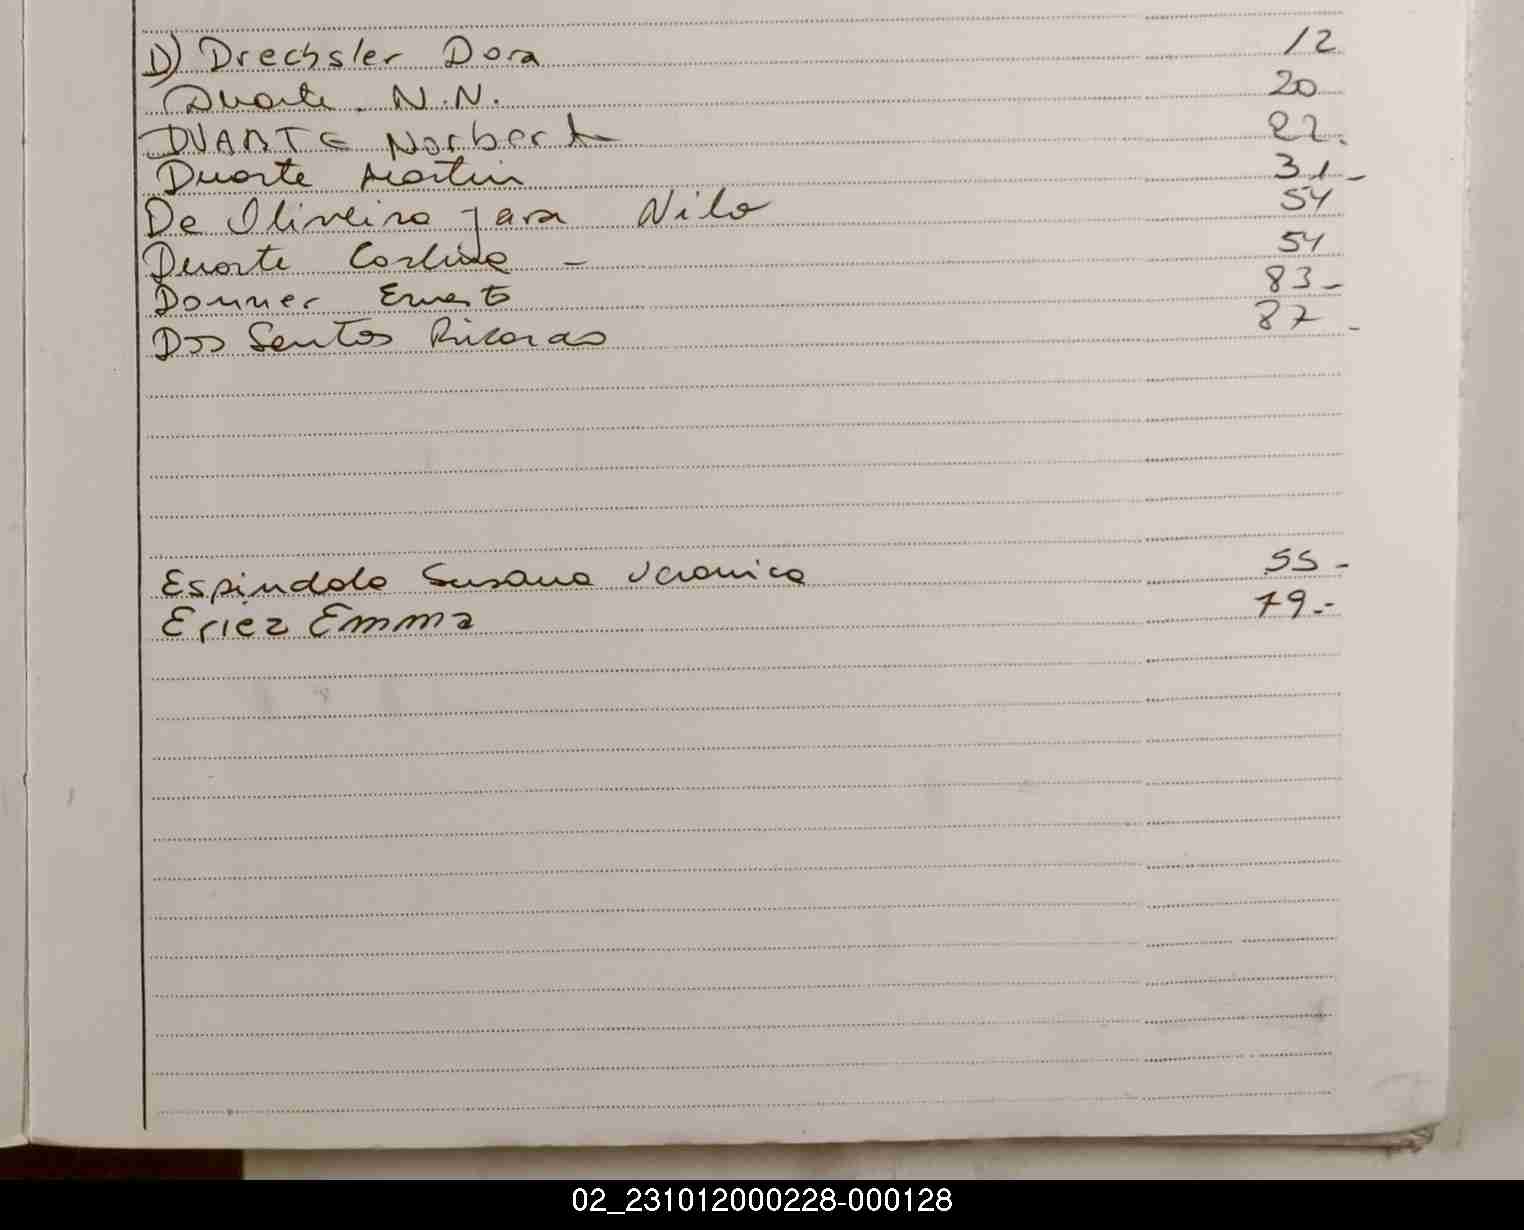 D) Drechsler Dora 12
Duarte N.N. 20
DUARTE Norberto 22.
Duarte Martin 31-
De Oliveira Jara Nilo 54
Duarte Carlino - 54
Donner Ernesto 83-
Dos Santos Ricardo 87-
Espindola Susana Veronica 55-
Eriez Emma 79.-
02_231012000228-000128